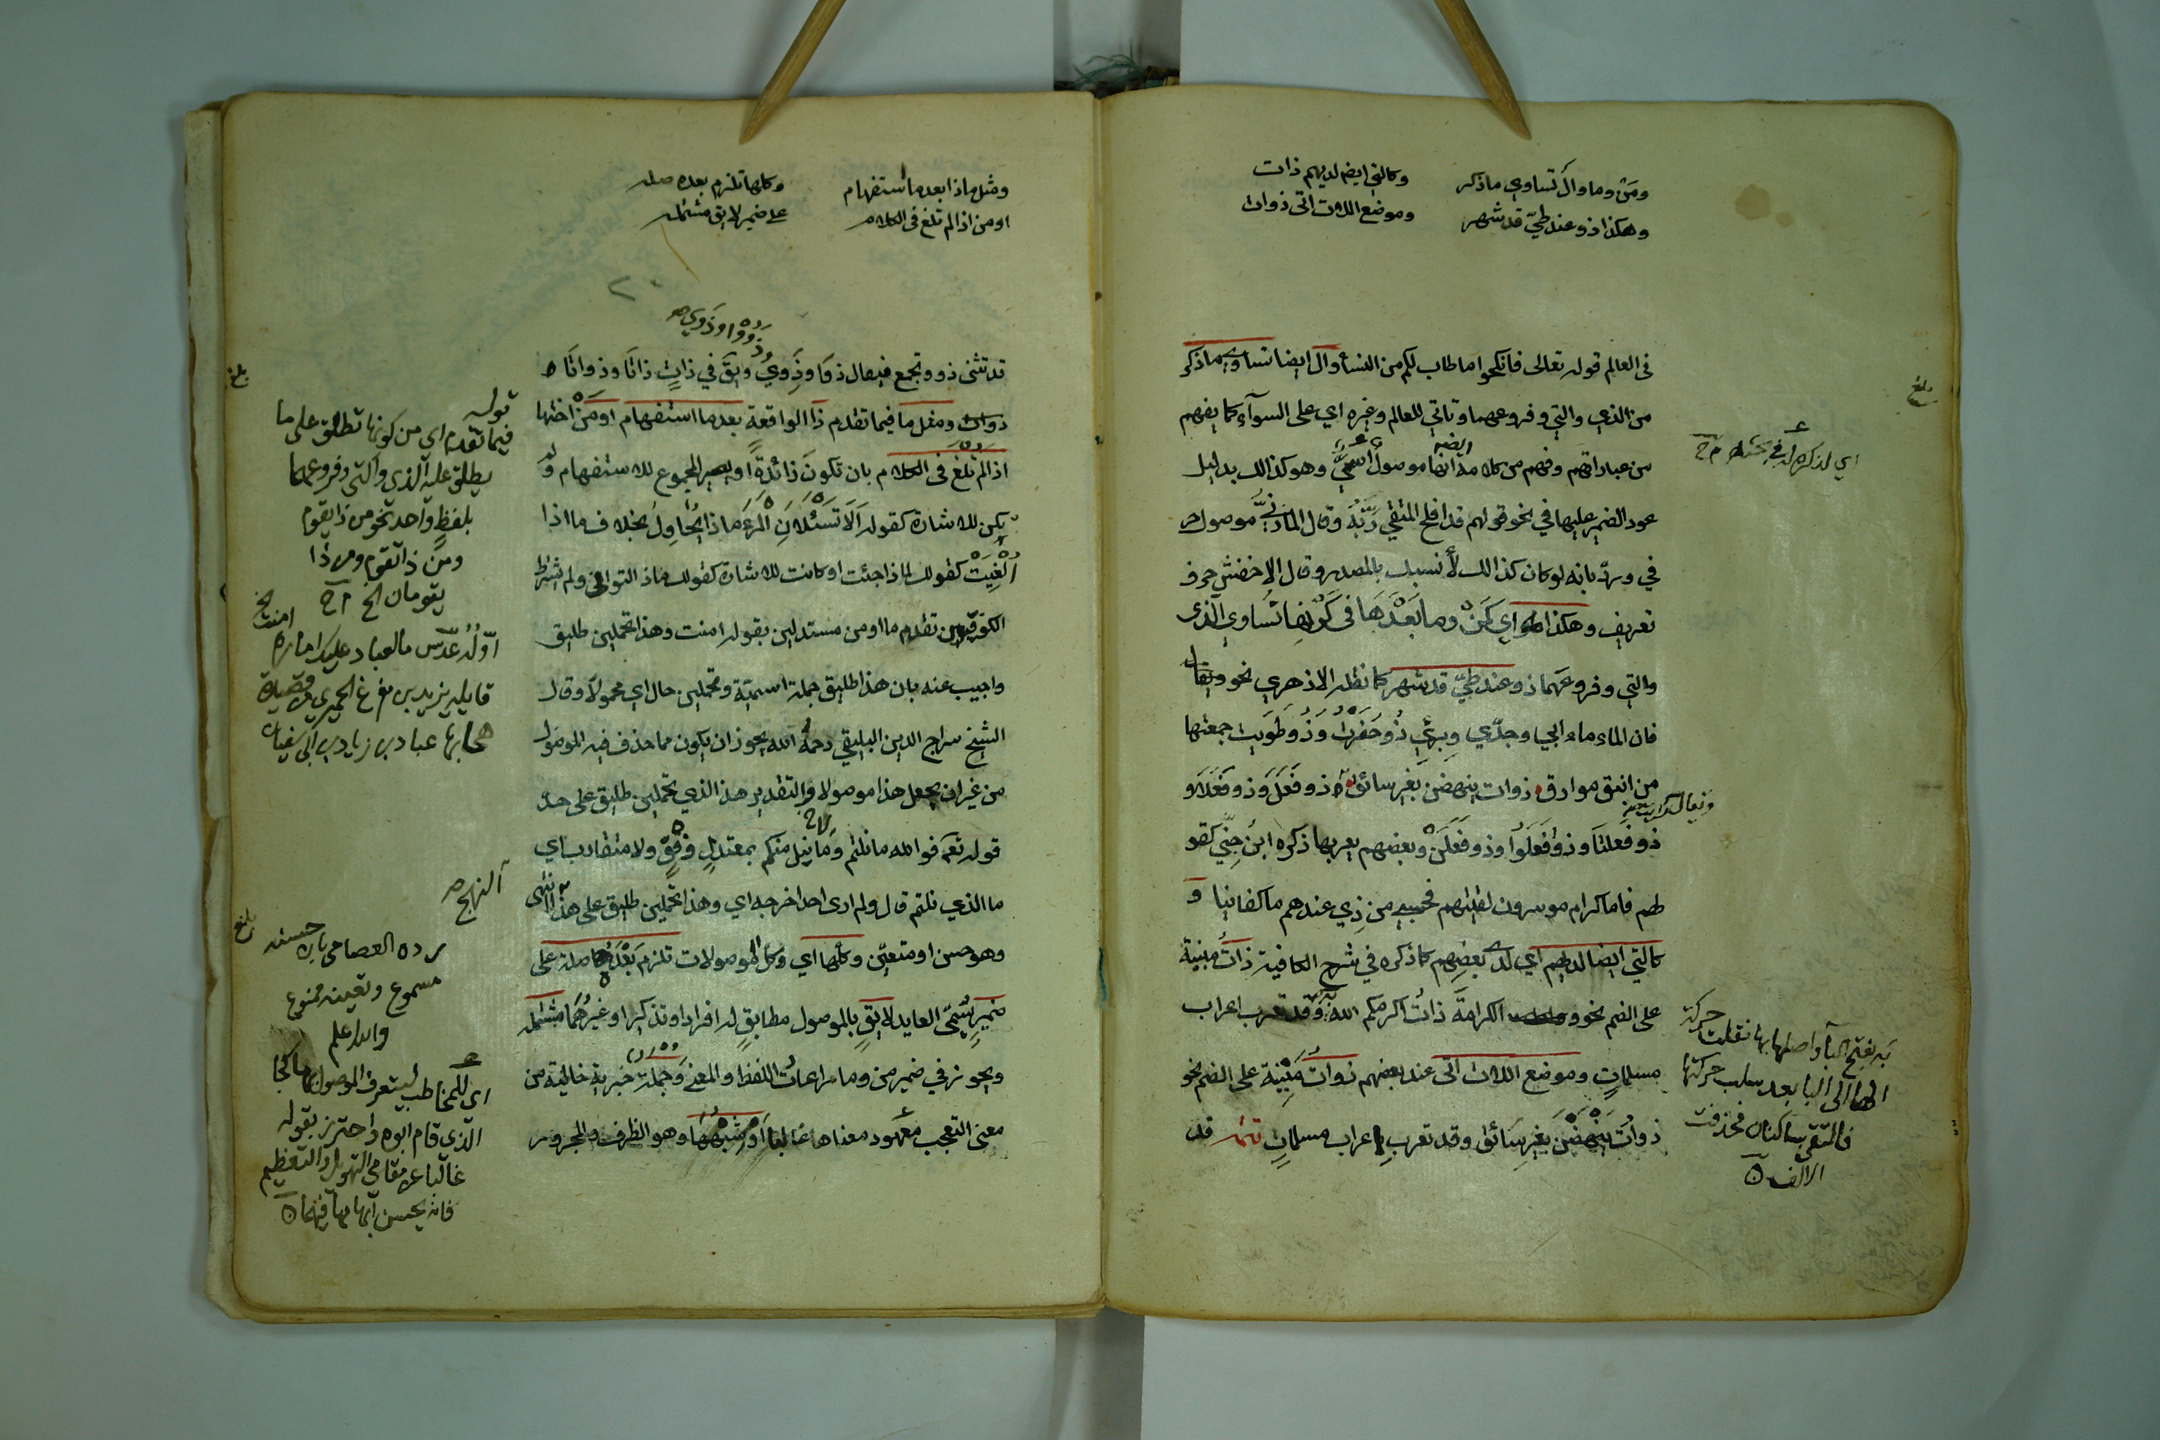 ومن وما وال تساوي ما ذكر
وهكذا ذو عند طيّ قد شهر
وكالتي ايضا لديهم ذات
وموضع اللات اتى ذوات
في العالم قوله تعالى فانكحوا ما طاب لكم من النسا وال ايضا تساوي ما ذكر
من الذي والتي وفروعهما وتاتي للعالم وغيره اي على السوآء كما يفهم
من عباراتهم وفهم من كلامه انها موصول اسميّ وهو كذالك بدليل
عود الضمير عليها في نحو قولهم قد افلح المتقي ربّه وقال المازنيّ موصول حر
في وردّ بانه لو كان كذالك لأنسبك بالمصدر وقال الاخفش حرف
تعريف وهكذا اي كمن وما بعدها في كونها تساوي الذي
والتي وفروعهما ذو عند طيّ قد شهر كما نقله الازهري نحو
فان الماء ماء ابي وجدّي وبئري ذو حفرت وذو طويت جمعتها
من اينق موارق ذوات ينهضن بغير سائق ذو فعل وذو فعلا و
ذو فعلتا وذو فعلوا وذو فعلن وبعضهم يعربها ذكره ابن جنّي كقو
لهم فاما كرام موسرون لقيتهم فحسبي من ذي عندهم ما كفانيا و
كالتي ايضا لديهم اي لدى بعضهم كما ذكره في شرح الكافية ذات مبنية
على الضم نحو الكرامة ذات اكرمكم الله به وقد تعرب اعراب
مسلمات وموضع اللات اتى عند بعضهم ذوات مبنية على الضم نحو
ذوات ينهضن بغير سائق وقد تعرب اعراب مسلمات تتمه قد
اي لذكره له في بحثه
به بفتح البآء واصلها بها نقلت حركة
الهاء الى البا بعد سلب حركتها
فالتقى ساكنان فحذفت
الالف
بلغ
ومثل ما ذا بعد ما استفهام
او من اذا لم تلغ في الكلام
وكلها تلزم بعده صله
على ضمير لايق مشتمله
ذووا وذوي
قد تثنى ذو وتجمع فيقال ذوا وذوي وفي ذات ذاتا وذواتا
ذوات ومثل ما فيما تقدم ذا الواقعة بعد ما استفهام او من اختها
اذا لم تلغ في الكلام بان تكون زائدة او يصير المجموع للاستفهام ولم
يكن للاشارة كقوله ألا تسئلان المرء ماذا يحاول بخلاف ما اذا
ألغيت كقولك لماذا جئت او كانت للاشارة كقولك ماذا التواني ولم يشترط
الكوفيون تقدم ما او من مستدلين بقوله امنت وهذا تحملين طليق
واجيب عنه بان هذا طليق جملة اسمية وتحملين حال اي محمولا وقال
الشيخ سراج الدين البلقيني رحمه الله يجوز ان يكون مما حذف فيه الموصول
من غير ان يجعل هذا موصولا والتقدير هذا الذي تحملين طليق على حدّ
قوله فوالله ما نلتم وما نيل منكم بمعتدل وفق ولا متقارب اي
ما الذي نلتم قال ولم ارى احدا خرجه اي وهذا تحملين طليق على هذا انتهى
وهو حسن او متعين وكلها اي وكل الموصولات تلزم بعدها صلة على
ضمير يسمى العايد لايق بالموصول مطابق له افرادا وتذكيرا وغيرهما مشتمله
ويجوز في ضمير من وما مراعات اللفظ والمعنى وجملة خبرية خالية من
معنى التعجب معهود معناها غالبا او شبهها وهو الظرف والمجرور
قوله
فيما تقدم اي من كونها تطلق على ما
يطلق عليه الذي والتي وفروعهما
بلفظ واحد نحو من ذا يقوم
ومن ذا تقوم ومن ذا
يقومان الخ
اوله عدس ما لعباد عليك امارة
قايله يزيد بن مفرغ الحميري من قصيدة
هجا بها عباد بن زياد بن ابي سفيان
رده العصامي بان حسنه
مسموع وتعينه ممنوع
والله اعلم
اي للمخاطب ليتعرف الموصول بها كجا
الذي قام ابوه واحترز بقوله
غالبا عن مقامي التهويل والتعظيم
فانه يحسن ابهامها فيهما
بلغ
بلغ